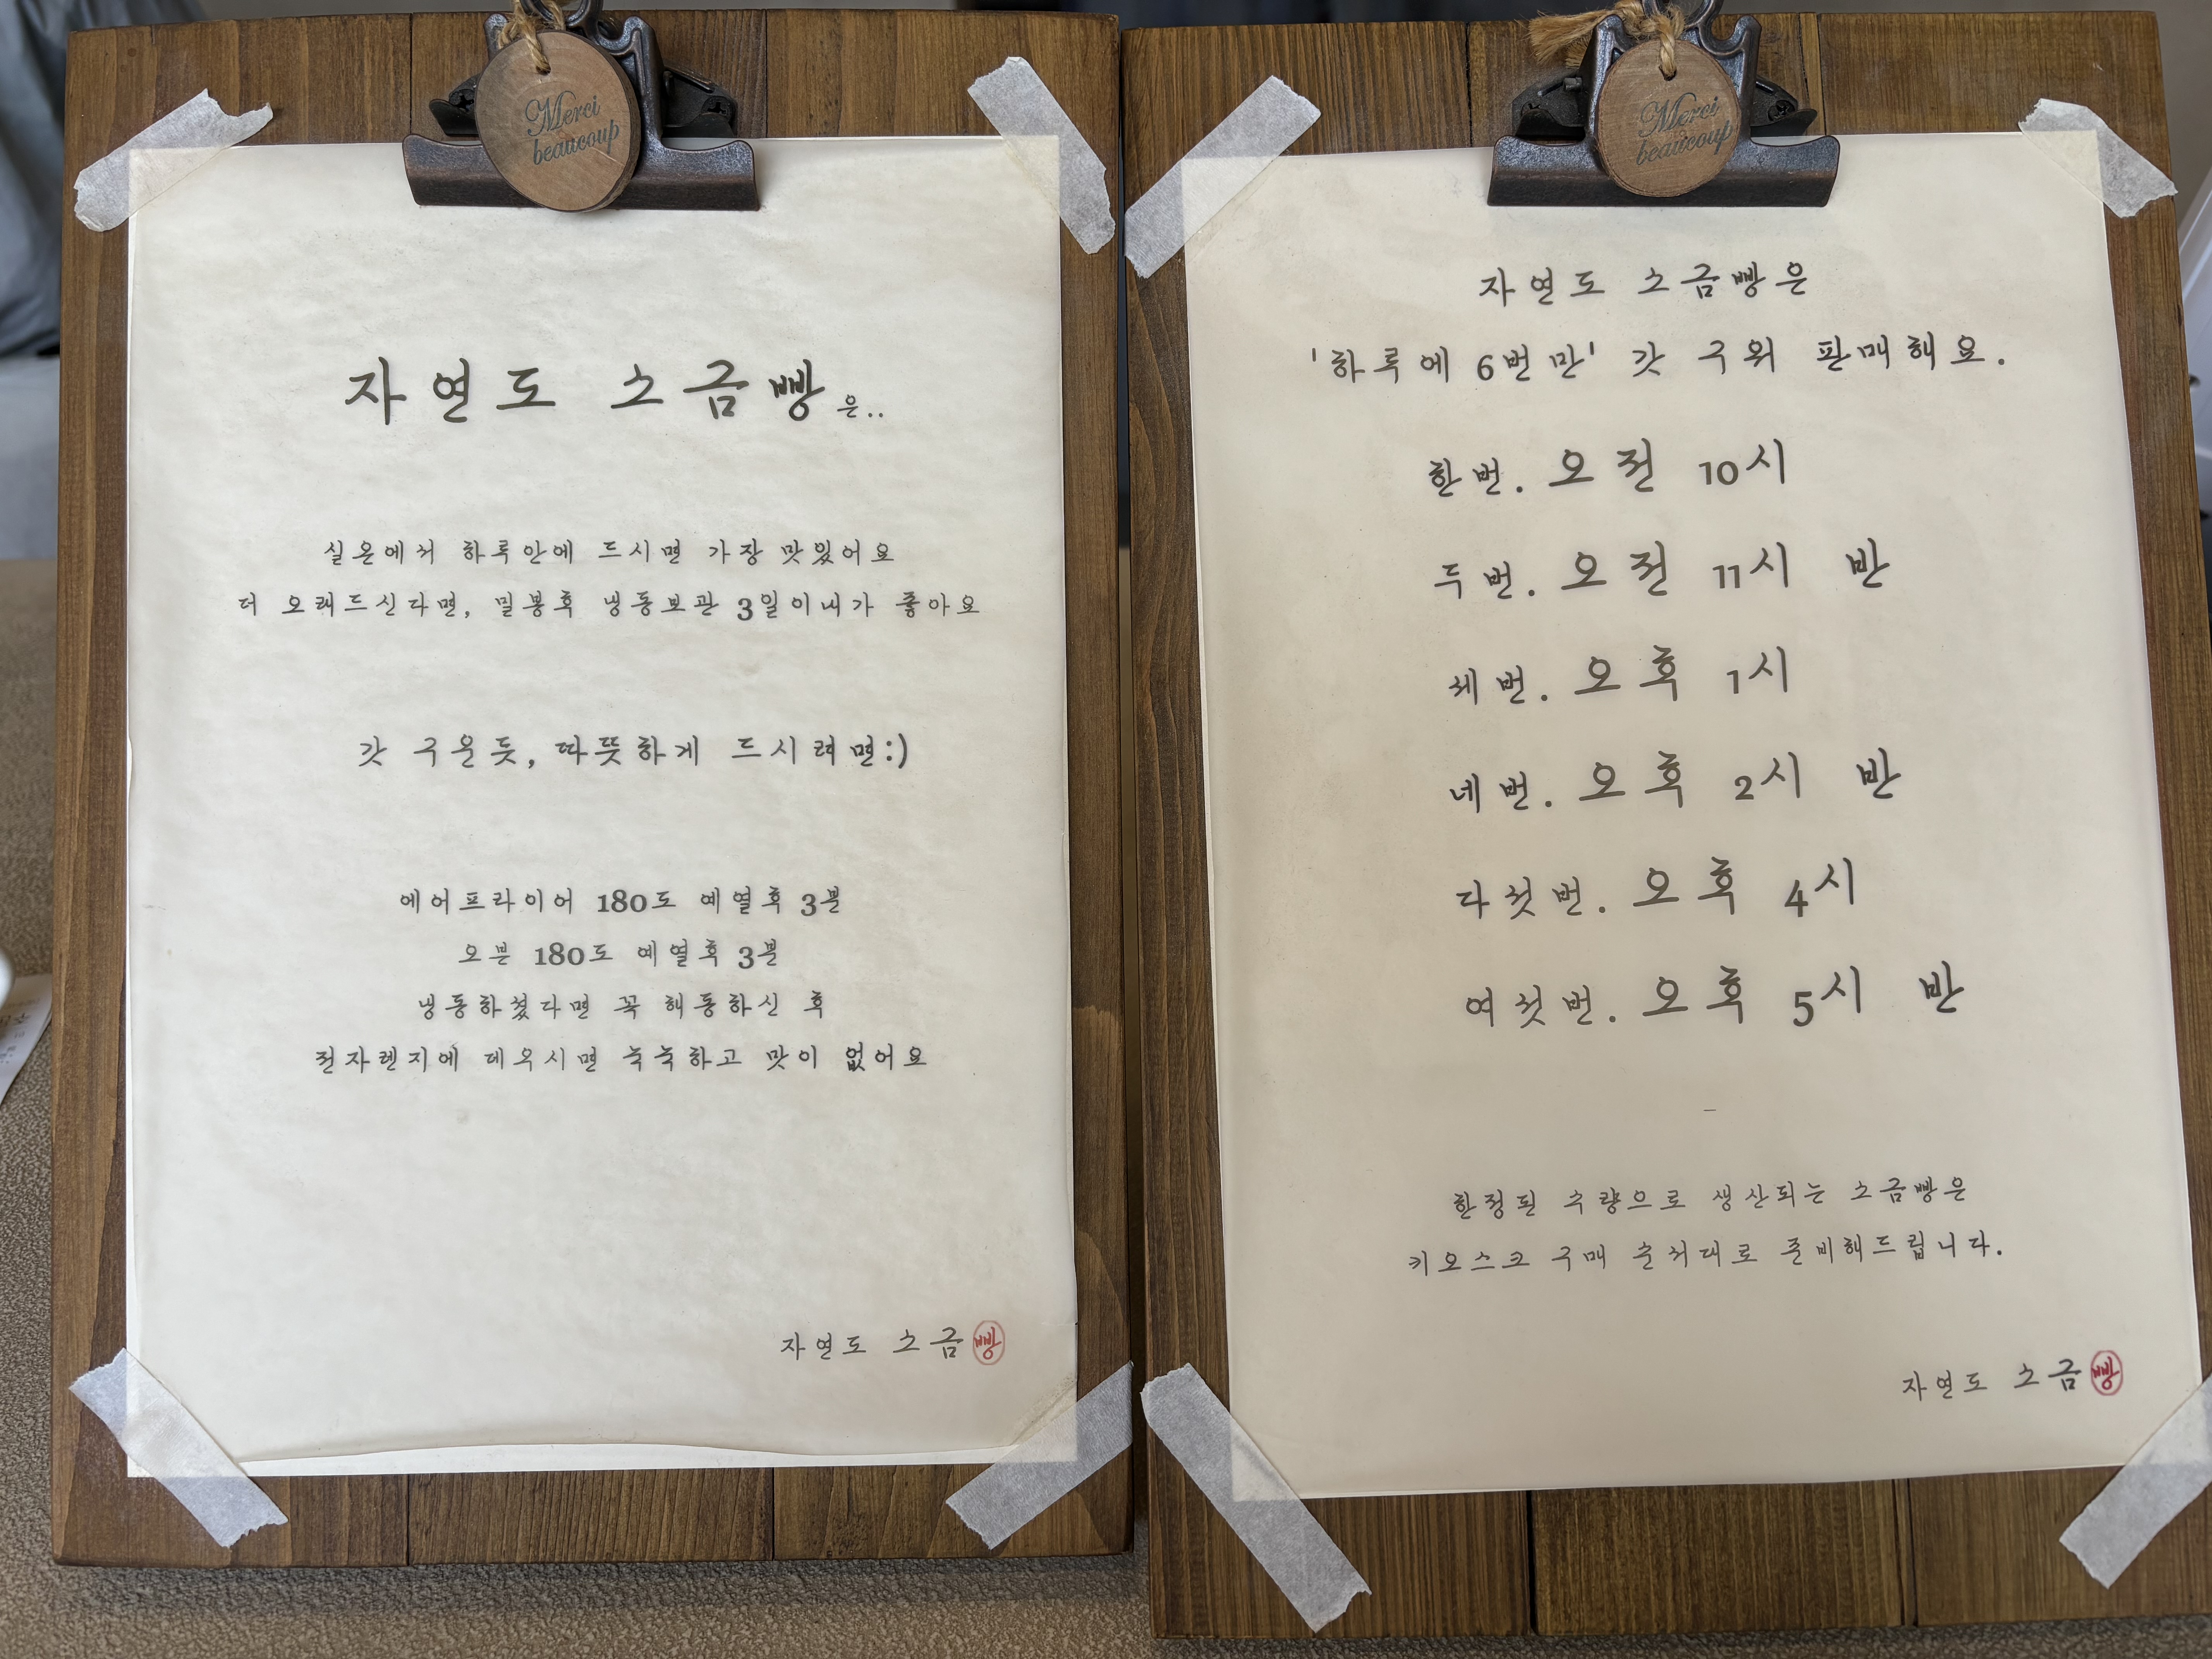 Merci
beaucoup
자연도 소금빵은..
실온에서 하루안에 드시면 가장 맛있어요
더 오래드신다면, 밀봉후 냉동보관 3일이내가 좋아요
갓 구운듯, 따뜻하게 드시려면:)
에어프라이어 180도 예열후 3분
오븐 180도 예열후 3분
냉동하셨다면 꼭 해동하신 후
전자렌지에 데우시면 눅눅하고 맛이 없어요
자연도 소금빵
Merci
beaucoup
자연도 소금빵은
'하루에 6번만' 갓 구워 판매해요.
한번. 오전 10시
두번. 오전 11시 반
세번. 오후 1시
네번. 오후 2시 반
다섯번. 오후 4시
여섯번. 오후 5시 반
–
한정된 수량으로 생산되는 소금빵은
키오스크 구매 순서대로 준비해드립니다.
자연도 소금빵